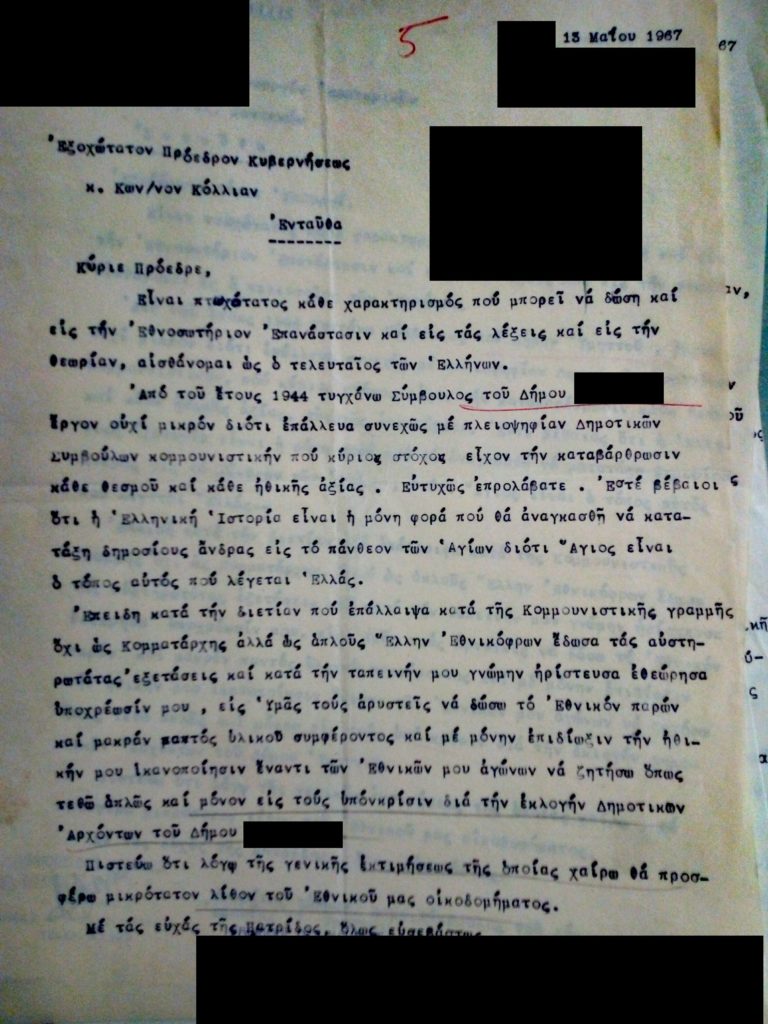 5
13 Μαΐου 1967
67
Ἐξοχώτατον Πρόεδρον Κυβερνήσεως
κ. Κων/νον Κόλλιαν
Ἐνταῦθα
Κύριε Πρόεδρε,
Εἶναι πτωχότατος κάθε χαρακτηρισμός πού μπορεῖ νά δώση καί
εἰς τήν Ἐθνοσωτήριον Ἐπανάστασιν καί εἰς τάς λέξεις καί εἰς τήν
θεωρίαν, αἰσθάνομαι ὡς ὁ τελευταῖος τῶν Ἑλλήνων.
Ἀπό τοῦ ἔτους 1944 τυγχάνω Σύμβουλος τοῦ Δήμου
ἔργον οὐχί μικρόν διότι ἐπάλλευα συνεχῶς μέ πλειοψηφίαν Δημοτικῶν
Συμβούλων κομμουνιστικήν πού κύριος στόχος εἶχον τήν καταβάρθρωσιν
κάθε θεσμοῦ καί κάθε ἠθικῆς ἀξίας . Εὐτυχῶς ἐπρολάβατε . Ἐστέ βέβαιοι
ὅτι ἡ Ἑλληνική Ἱστορία εἶναι ἡ μόνη φορά πού θά ἀναγκασθῆ νά κατα-
τάξη δημοσίους ἄνδρας εἰς τό πάνθεον τῶν Ἁγίων διότι Ἅγιος εἶναι
ὁ τόπος αὐτός πού λέγεται Ἑλλάς.
Ἐπειδη κατά τήν διετίαν πού ἐπάλλαιψα κατά τῆς Κομμουνιστικῆς γραμμῆς
ὄχι ὡς Κομματάρχης ἀλλά ὡς ἁπλοῦς Ἕλλην Ἐθνικόφρων ἔδωσα τάς αὐστη-
ρωτάτας ἐξετάσεις καί κατά τήν ταπεινήν μου γνώμην ἠρίστευσα ἐθεώρησα
ὑποχρέωσίν μου , εἰς Ὑμᾶς τούς ἀρυστεῖς νά δώσω τό Ἐθνικόν παρών
καί μακράν παντός ὑλικοῦ συμφέροντος καί μέ μόνην ἐπιδίωξιν τήν ἠθι-
κήν μου ἱκανοποίησιν ἔναντι τῶν Ἐθνικῶν μου ἀγώνων νά ζητήσω ὅπως
τεθῶ ἁπλῶς καί μόνον εἰς τούς ὑπόνκρίσιν διά τήν ἐκλογήν Δημοτικων
Ἀρχόντων τοῦ Δήμου
Πιστεύω ὅτι λόγῳ τῆς γενικῆς ἐκτιμήσεως τῆς ὁποίας χαίρω θά προσ-
φέρω μικρότατον λίθον τοῦ Ἐθνικοῦ μας οἰκοδομήματος.
Μέ τάς εὐχάς τῆς Πατρίδος, ὅλως εὐσεβάστως